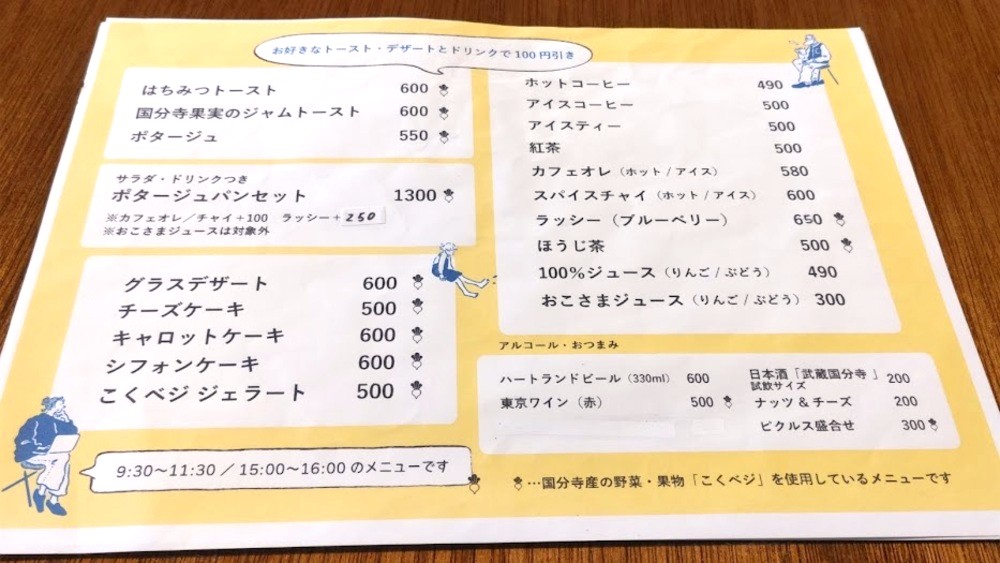 お好きなトースト・デザートとドリンクで100円引き
はちみつトースト 600
国分寺果実のジャムトースト 600
ポタージュ 550
サラダ・ドリンクつき
ポタージュパンセット 1300
※カフェオレ／チャイ+100 ラッシー+250
※おこさまジュースは対象外
グラスデザート 600
チーズケーキ 500
キャロットケーキ 600
シフォンケーキ 600
こくベジ ジェラート 500
9:30〜11:30 ／ 15:00〜16:00 のメニューです
ホットコーヒー 490
アイスコーヒー 500
アイスティー 500
紅茶 500
カフェオレ（ホット / アイス） 580
スパイスチャイ（ホット / アイス） 600
ラッシー（ブルーベリー） 650
ほうじ茶 500
100%ジュース（りんご / ぶどう） 490
おこさまジュース（りんご / ぶどう） 300
アルコール・おつまみ
ハートランドビール（330ml） 600
東京ワイン（赤） 500
日本酒「武蔵国分寺」 200
試飲サイズ
ナッツ & チーズ 200
ピクルス盛合せ 300
…国分寺産の野菜・果物「こくベジ」を使用しているメニューです